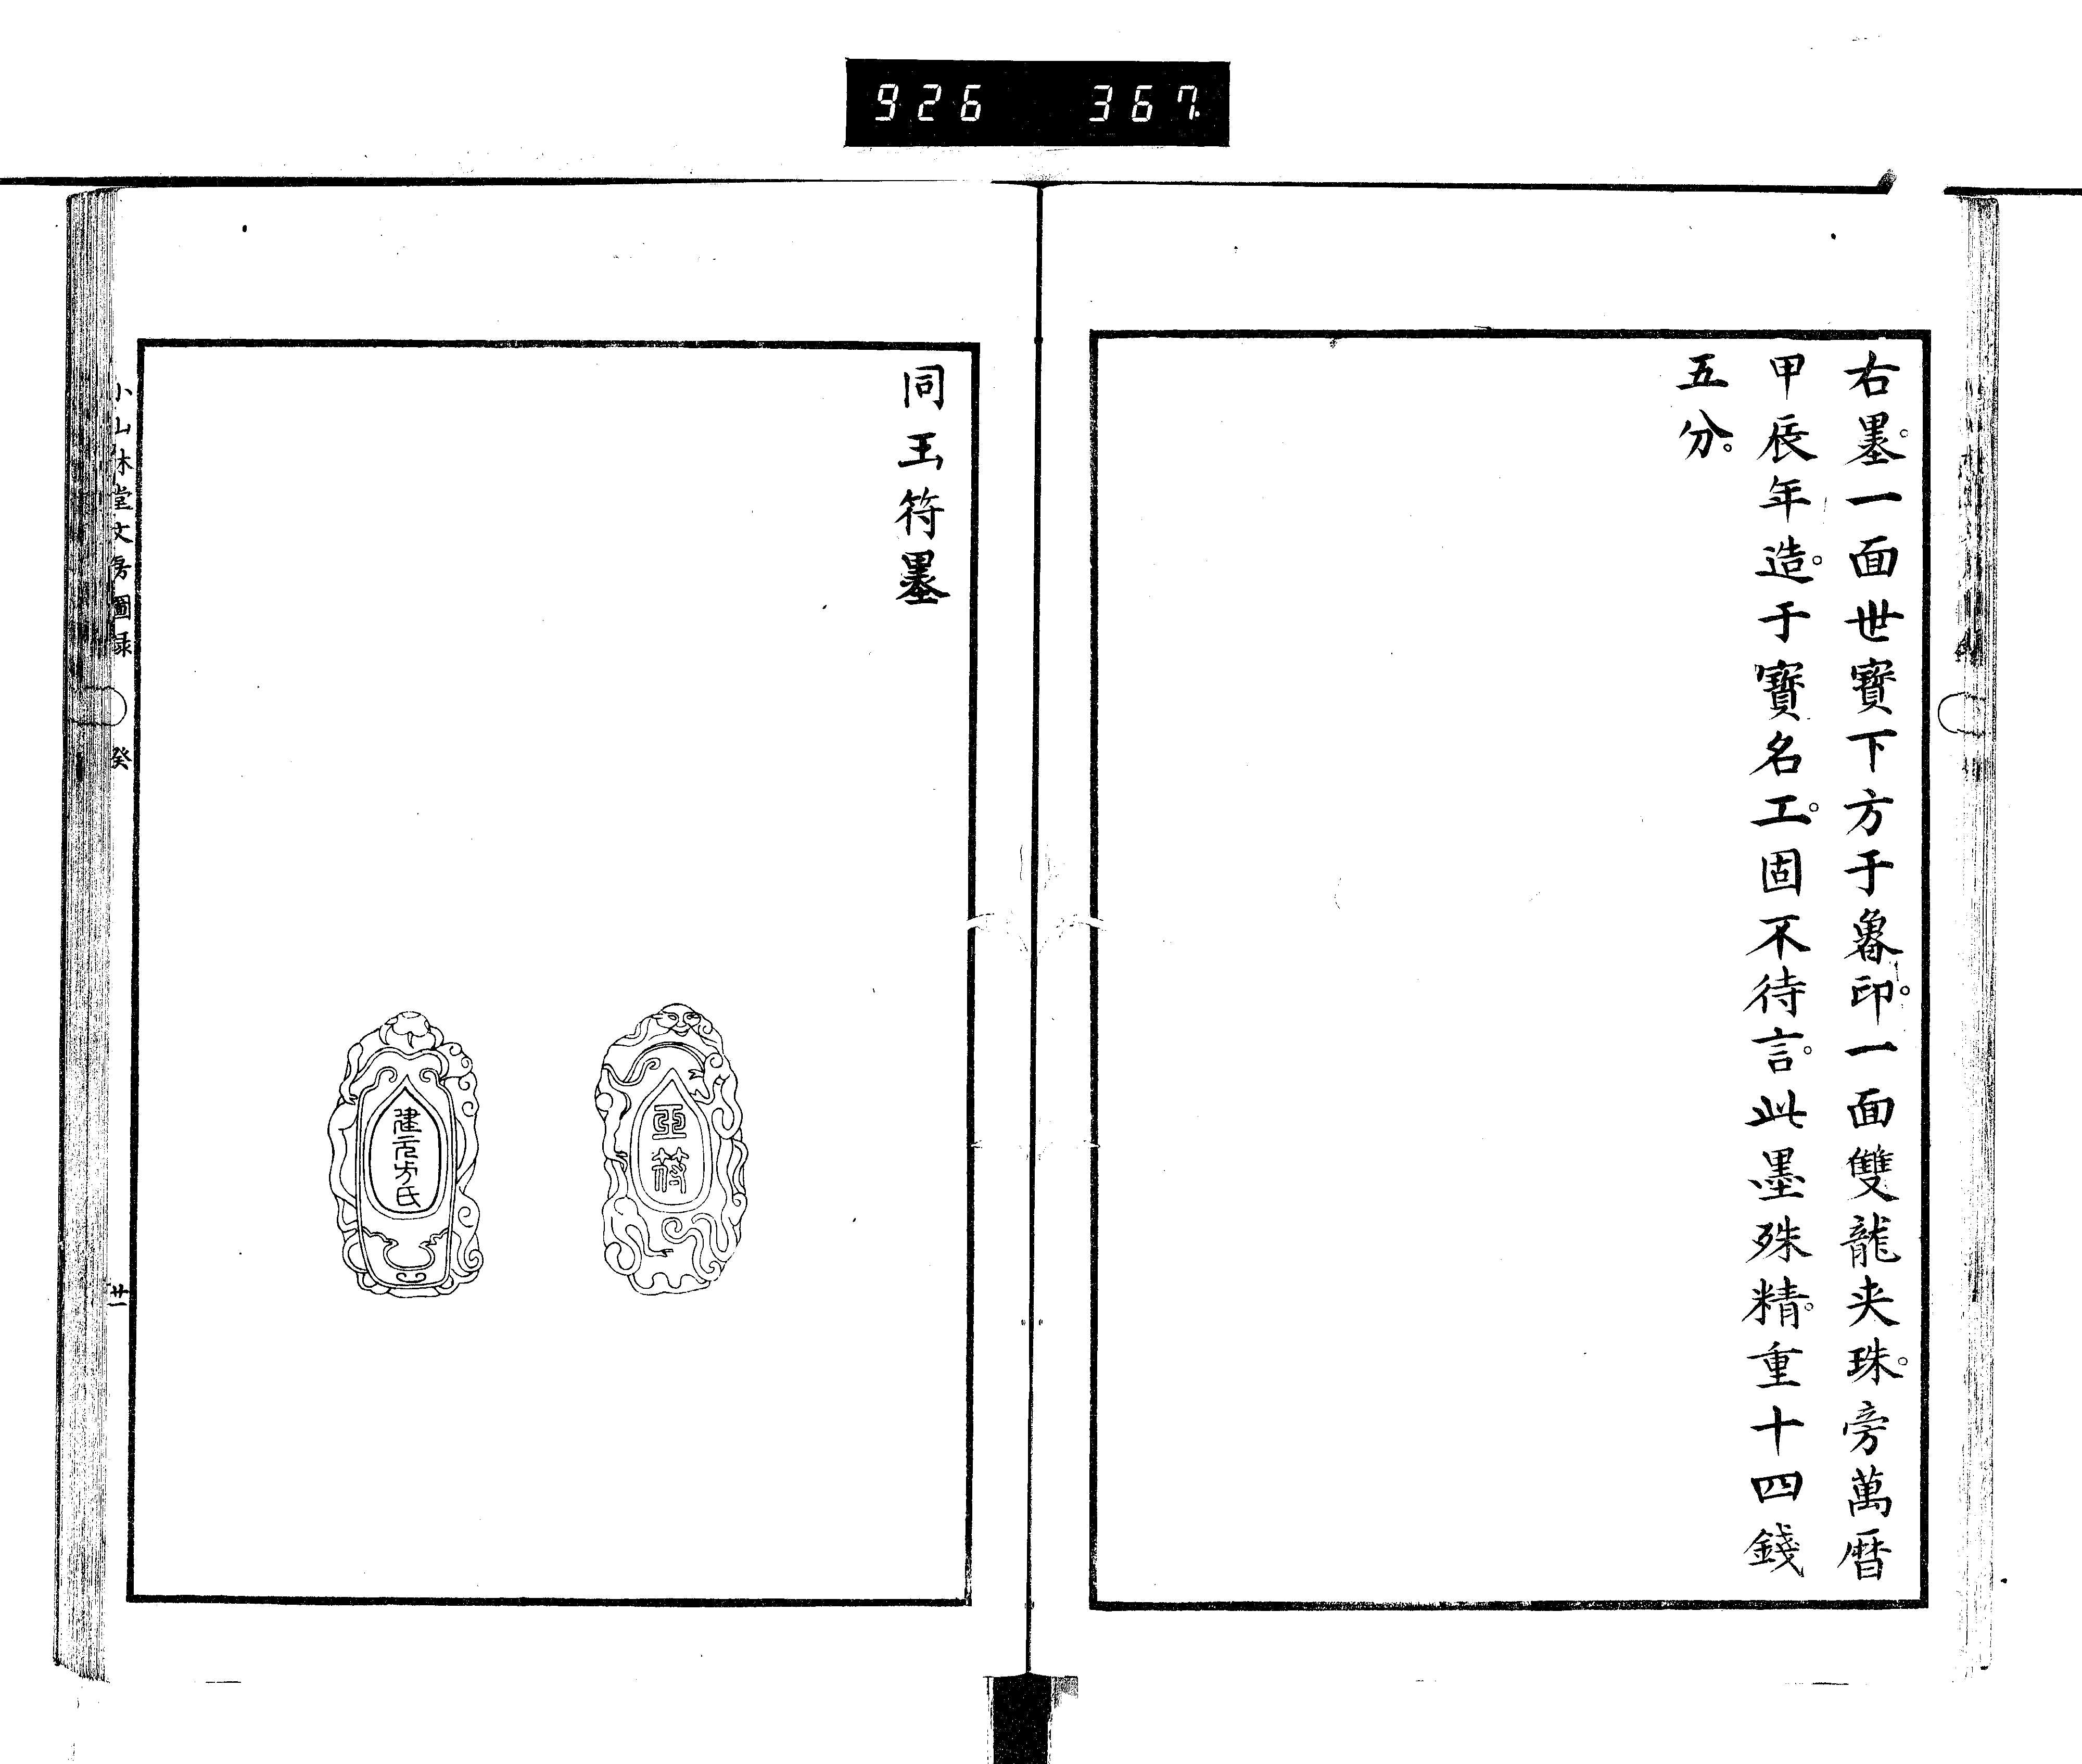 926 367
右墨。一面世寶下方于魯印。一面雙龍夾珠。旁萬曆
甲辰年造。于寶名工。固不待言。此墨殊精。重十四錢
五分。
同玉符墨
玉符
建元方氏
小山林堂文房圖録 癸 廿一